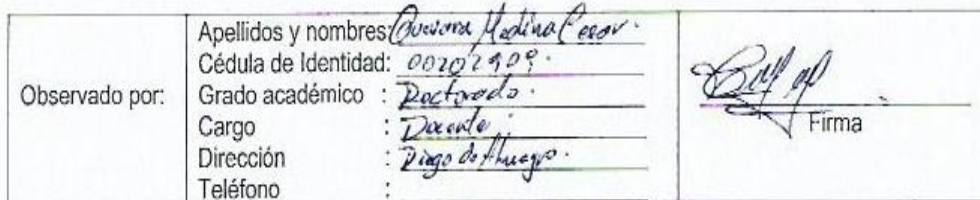 Observado por:
Apellidos y nombres: Medina Cesar.
Cédula de Identidad: 00202909.
Grado académico : Doctorado.
Cargo : Docente.
Dirección : Diego de
Teléfono :
Firma